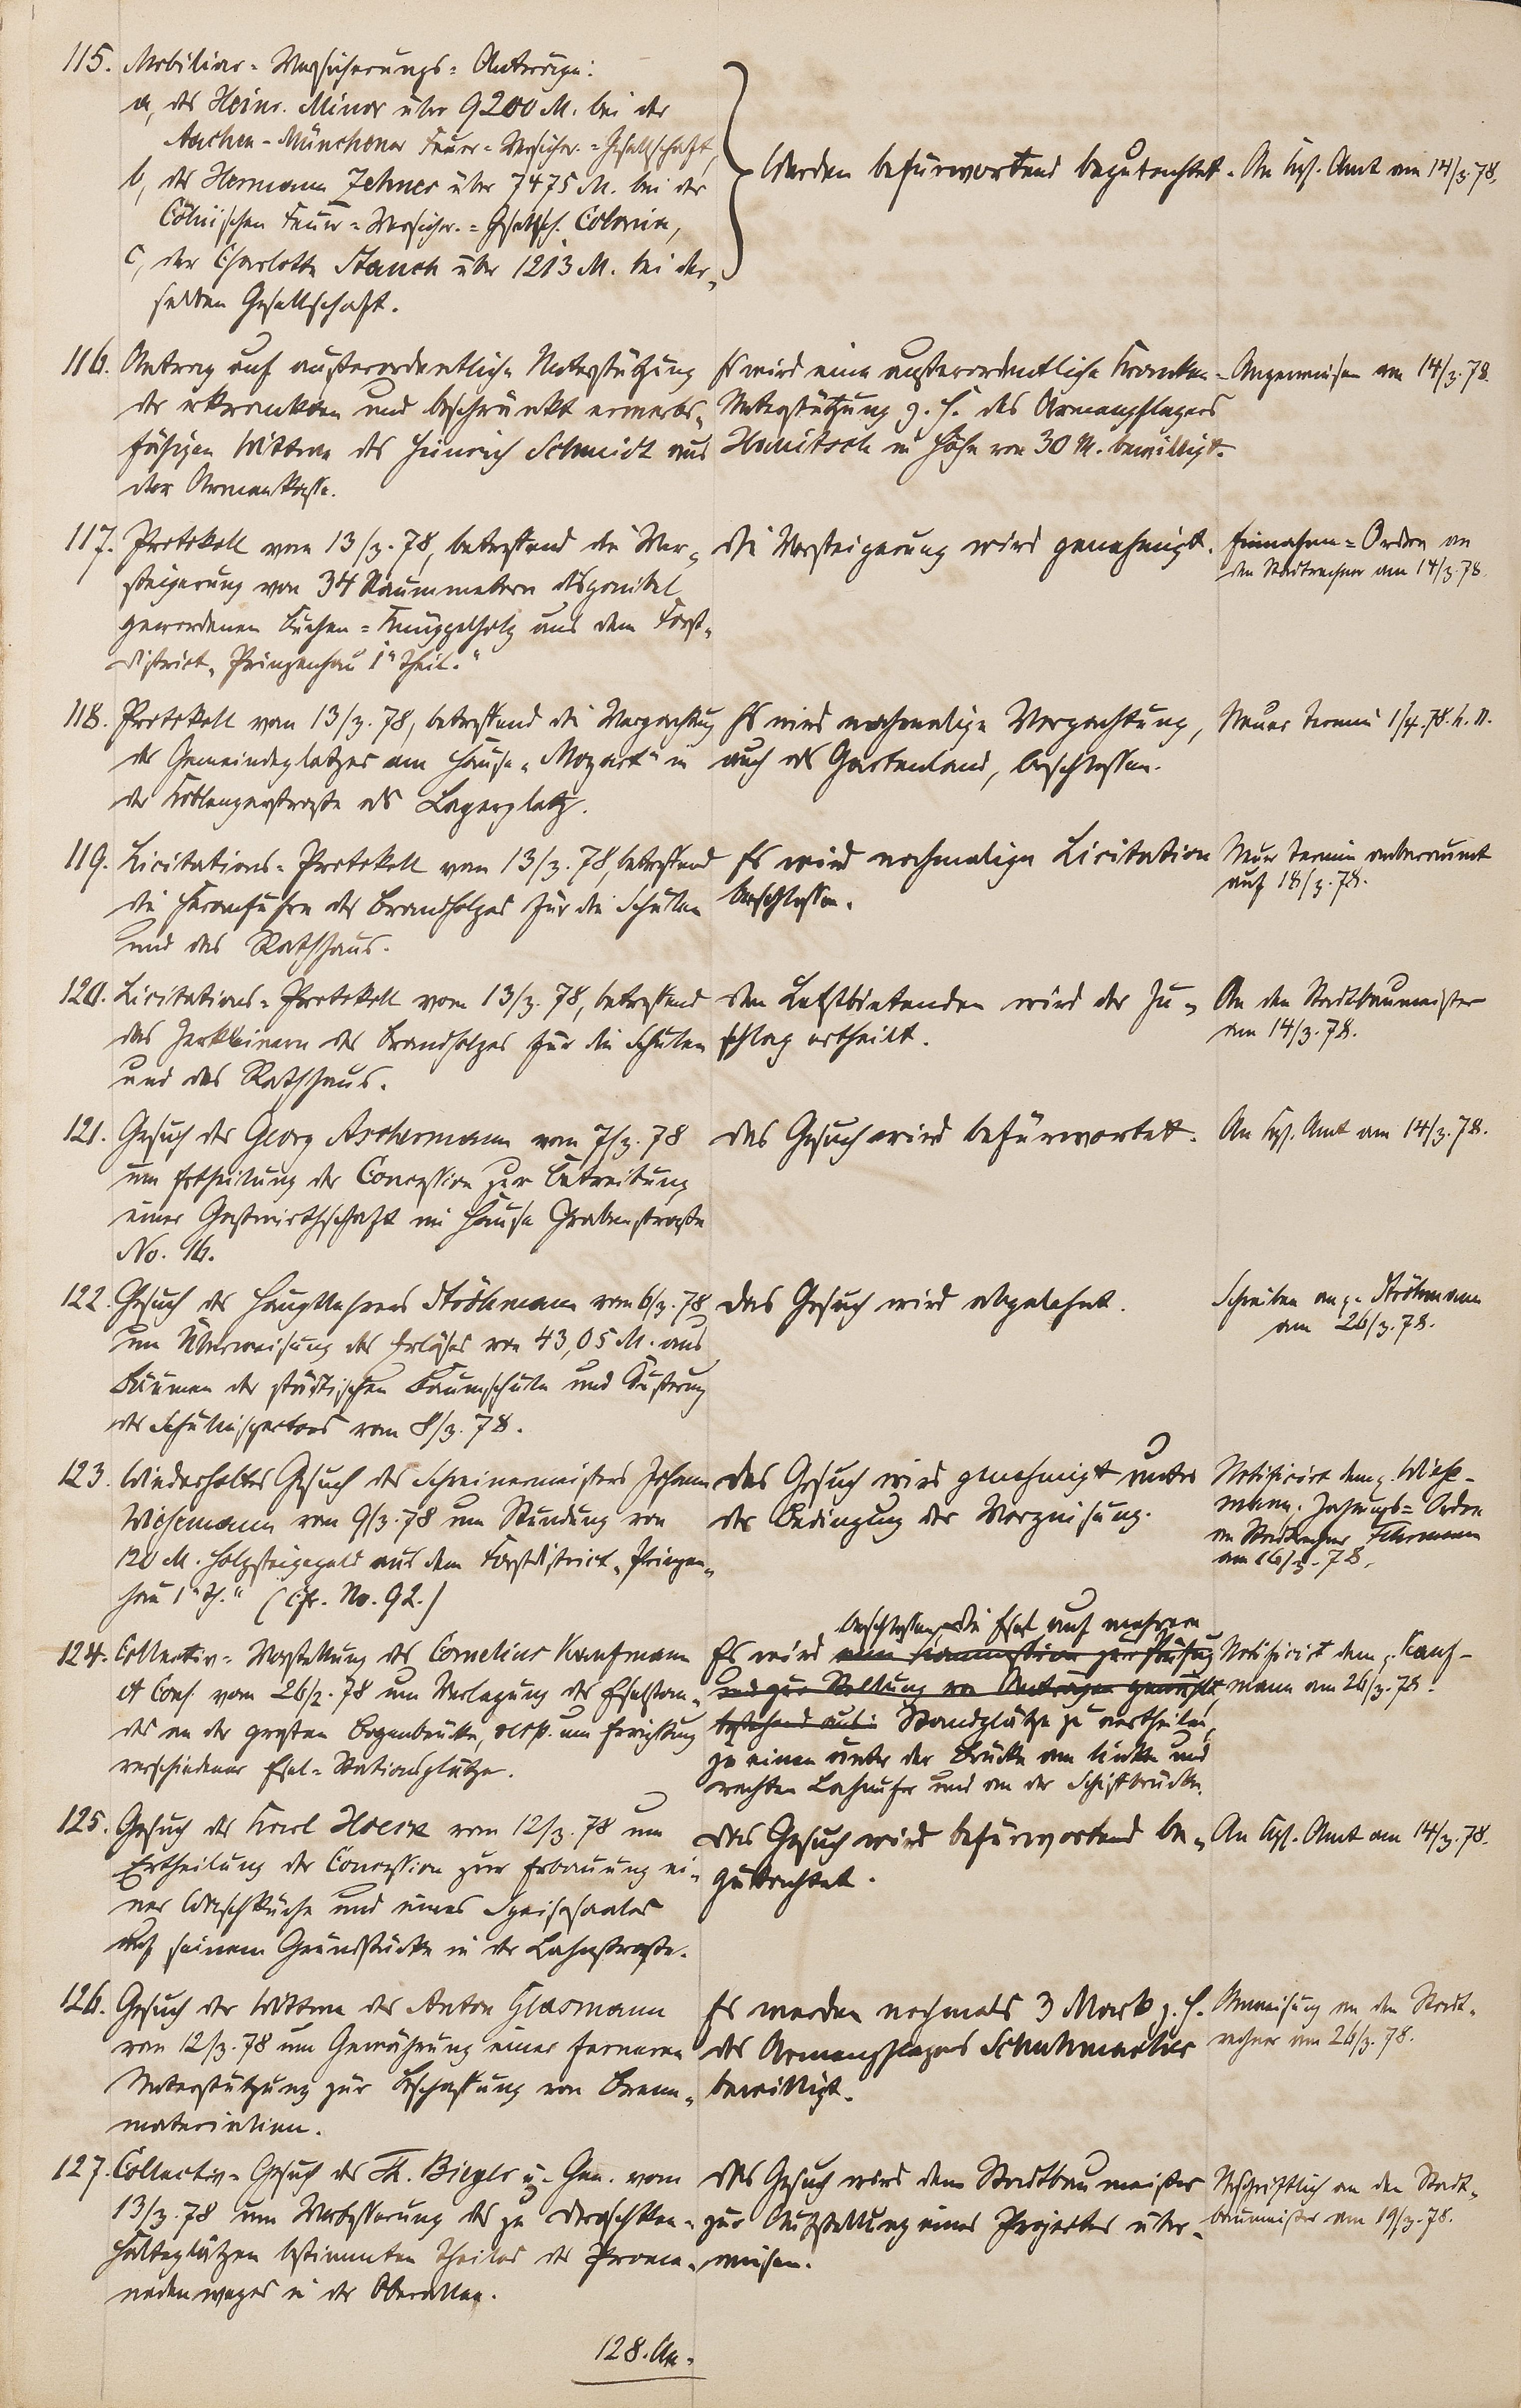 115. Mobiliar-Versicherungs-Anträge:
a, des Heinr. Minor über 9200 M. bei der
Aachen-Münchener Feuer-Versicher.-Gesellschaft,
b, des Hermann Zehner über 7475 M. bei der
Cölnischen Feuer-Versicher.-Gesellsch. Colonia,
c, der Charlotte Stauch über 1213 M. bei der-
selben Gesellschaft.
Werden befürwortend begutachtet.
An Kgl. Amt am 14/3.78.
116. Antrag auf außerordentliche Unterstützung
der erkrankten und beschränkt erwerbs-
fähigen Wittwe des Heinrich Schmidt aus
der Armenkasse.
Es wird eine außerordentliche Kranken-
Unterstützung z. H. des Armenpflegers
in Höhe von 30 M. bewilligt.
Angewiesen am 14/3.78.
117. Protokoll vom 13/3.78, betreffend die Ver-
steigerung von 34 Raummetern disponibel
gewordenen Buchen-Knüppelholz aus dem Forst-
district „Prinzenhau 1r Theil."
Die Versteigerung wird genehmigt.
Einnahme-Ordre an
den Stadtrechner am 14/3.78.
118. Protokoll vom 13/3.78, betreffend die Verpachtung
des Gemeindeplatzes am Hause „Mozart" in
der Koblenzerstraße als Lagerplatz.
Es wird nochmalige Verpachtung,
auch als Gartenland, beschlossen.
Neuer Termin 1/4.78.
119. Licitations-Protokoll vom 13/3.78, betreffend
die Heranfuhre des Brandholzes für die Schulen
und das Rathhaus.
Es wird nochmalige Licitation
beschlossen.
Neuer Termin anberaumt
auf 18/3.78.
120. Licitations-Protokoll vom 13/3.78, betreffend
das Zerkleinern des Brandholzes für die Schulen
und das Rathhaus.
Dem Letztbietenden wird der Zu-
schlag ertheilt.
An den Stadtbaumeister
am 14/3.78.
121. Gesuch des Georg Aschermann vom 7/3.78
um Ertheilung der Concession zur Betreibung
einer Gastwirthschaft im Hause Grabenstraße
No. 16.
Das Gesuch wird befürwortet.
An Kgl. Amt am 14/3.78.
122. Gesuch des Hauptlehrers Ströhmann vom 6/3.78
um Überweisung des Erlöses von 43,05 M. aus
Bäumen der städtischen Baumschule und Äußerung
des Schulinspectors vom 8/3.78.
Das Gesuch wird abgelehnt.
Schreiben an p. Ströhmann
am 26/3.78.
123. Wiederholtes Gesuch des Schreinermeisters Johann
Wiesemann vom 9/3.78 um Stundung von
120 M. Holzsteiggeld aus dem Forstdistrict „Prinzen-
hau 1r Th." (cfr. No. 92.)
Das Gesuch wird genehmigt unter
der Bedingung der Verzinsung.
Notificirt dem p. Wiese-
mann. Zahlungs-Ordre
an Stadtrechner
am 16/3.78.
124. Collectiv-Vorstellung des Cornelius Kaufmann
et Cons. vom 26/2.78 um Verlegung des Eselstan-
des an der großen Bogenbrücke, resp. um Errichtung
verschiedener Esel-Stationsplätze.
beschlossen, die Esel auf mehrere
Es wird eine Kommission zur Prüfung
und zur Stellung von Anträgen gewählt
bestehend aus: Standplätze zu vertheilen,
zu einen unter der Brücke am linken und
rechten Lahnufer und an der Schiffbrücke.
Notificirt dem p. Kauf-
mann am 26/3.78.
125. Gesuch des Karl vom 12/3.78 um
Ertheilung der Concession zur Erbauung ei-
ner Waschküche und eines Speisesaales
auf seinem Grundstücke in der Lahnstraße.
Das Gesuch wird befürwortend be-
gutachtet.
An Kgl. Amt am 14/3.78.
126. Gesuch der Wittwe des Anton Glasmann
vom 12/3.78 um Gewährung einer ferneren
Unterstützung zur Beschaffung von Brenn-
materialien.
Es werden nochmals 3 Mark z. H.
des Armenpflegers Schuhmacher
bewilligt.
Anweisung an den Stadt-
rechner am 26/3.78.
127. Collectiv-Gesuch des Th. Biegler u. Gen. vom
13/3.78 um Verbesserung des zu Droschken-
Halteplätzen bestimmten Theiles des Prome-
nadenweges in der Oberallee.
Das Gesuch wird dem Stadtbaumeister
zur Aufstellung eines Projectes über-
wiesen.
Abschriftlich an den Stadt-
baumeister am 19/3.78.
128. An-